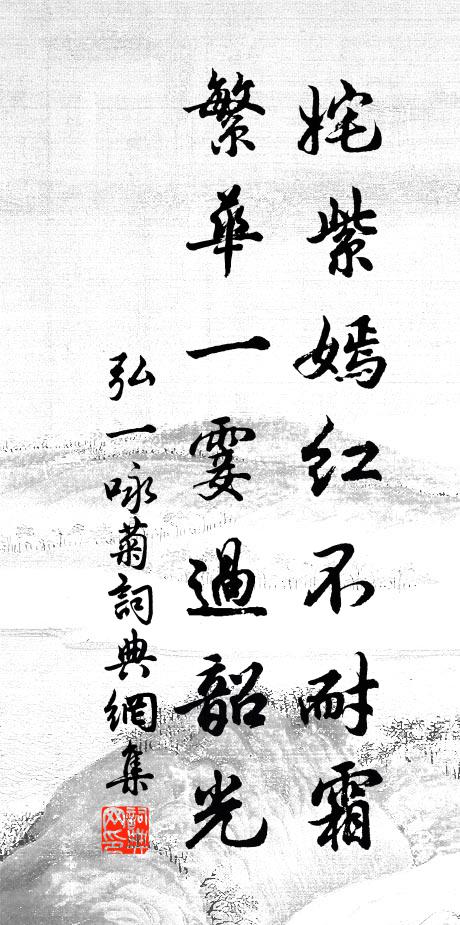 姹紫嫣紅不耐霜
繁華一霎過韶光
弘一咏菊詞典網集